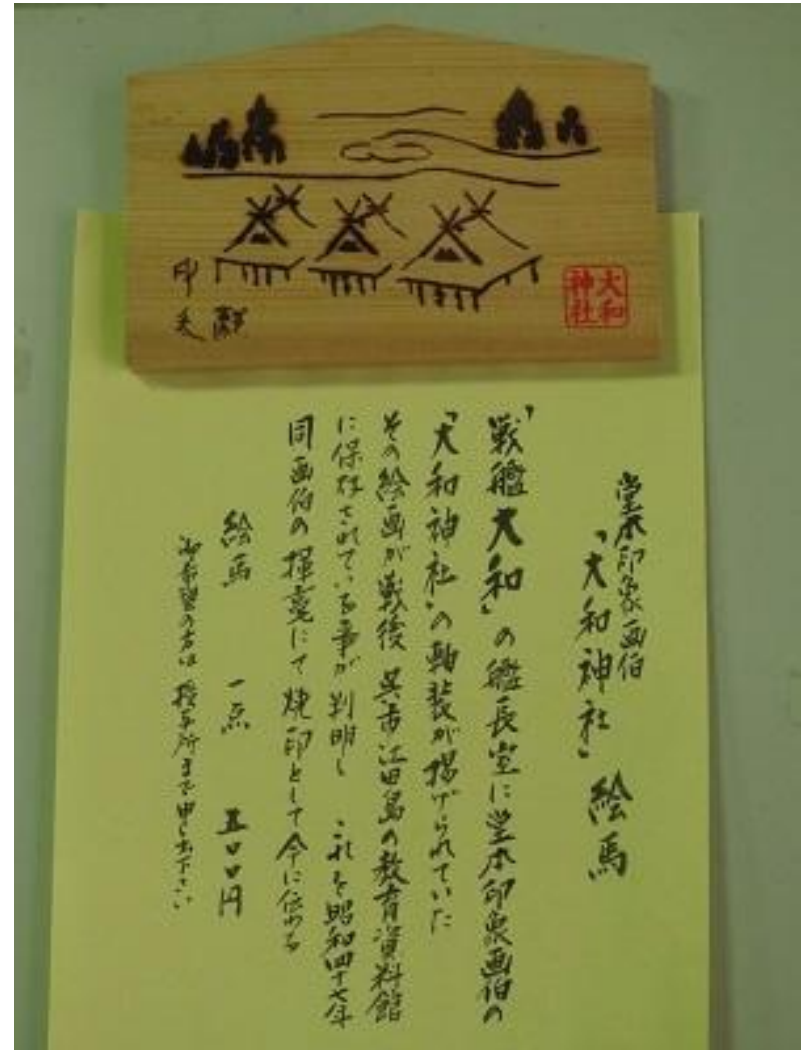 大和
神社
印象
謹
堂本印象画伯
「大和神社」絵馬
「戦艦大和」の艦長室に堂本印象画伯の
「大和神社」の軸装が揚げられていた
その絵画が戦後 呉市江田島の教育資料館
に保存されている事が判明し これを昭和四十七年
同画伯の揮毫にて焼印として今に伝わる
絵馬 一点 五〇〇円
御希望の方は 授与所まで申し出下さい